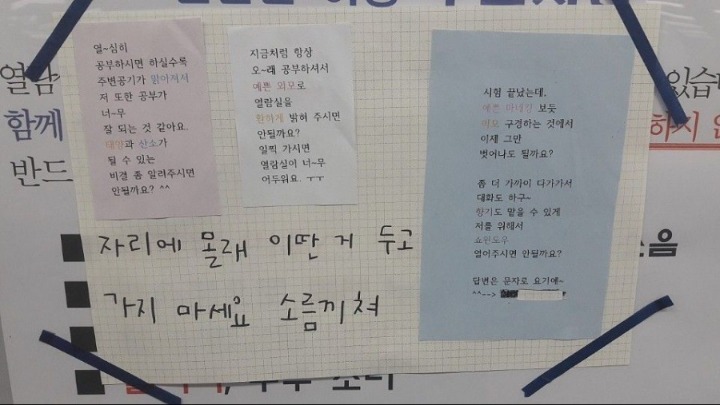 열~심히
공부하시면 하실수록
주변공기가 맑아져서
저 또한 공부가
너~무
잘 되는 것 같아요.
태양과 산소가
될 수 있는
비결 좀 알려주시면
안될까요? ^^
지금처럼 항상
오~래 공부하셔서
예쁜 외모로
열람실을
환하게 밝혀 주시면
안될까요?
일찍 가시면
열람실이 너~무
어두워요. ㅜㅜ
시험 끝났는데,
예쁜 마네킹 보듯
외모 구경하는 것에서
이제 그만
벗어나도 될까요?
좀 더 가까이 다가가서
대화도 하구~
향기도 맡을 수 있게
저를 위해서
쇼윈도우
열어주시면 안될까요?
답변은 문자로 요기에~
^^-->
자리에 몰래 이딴 거 두고
가지 마세요 소름끼쳐
열람
함께
반드
있습니
하지 않
소음